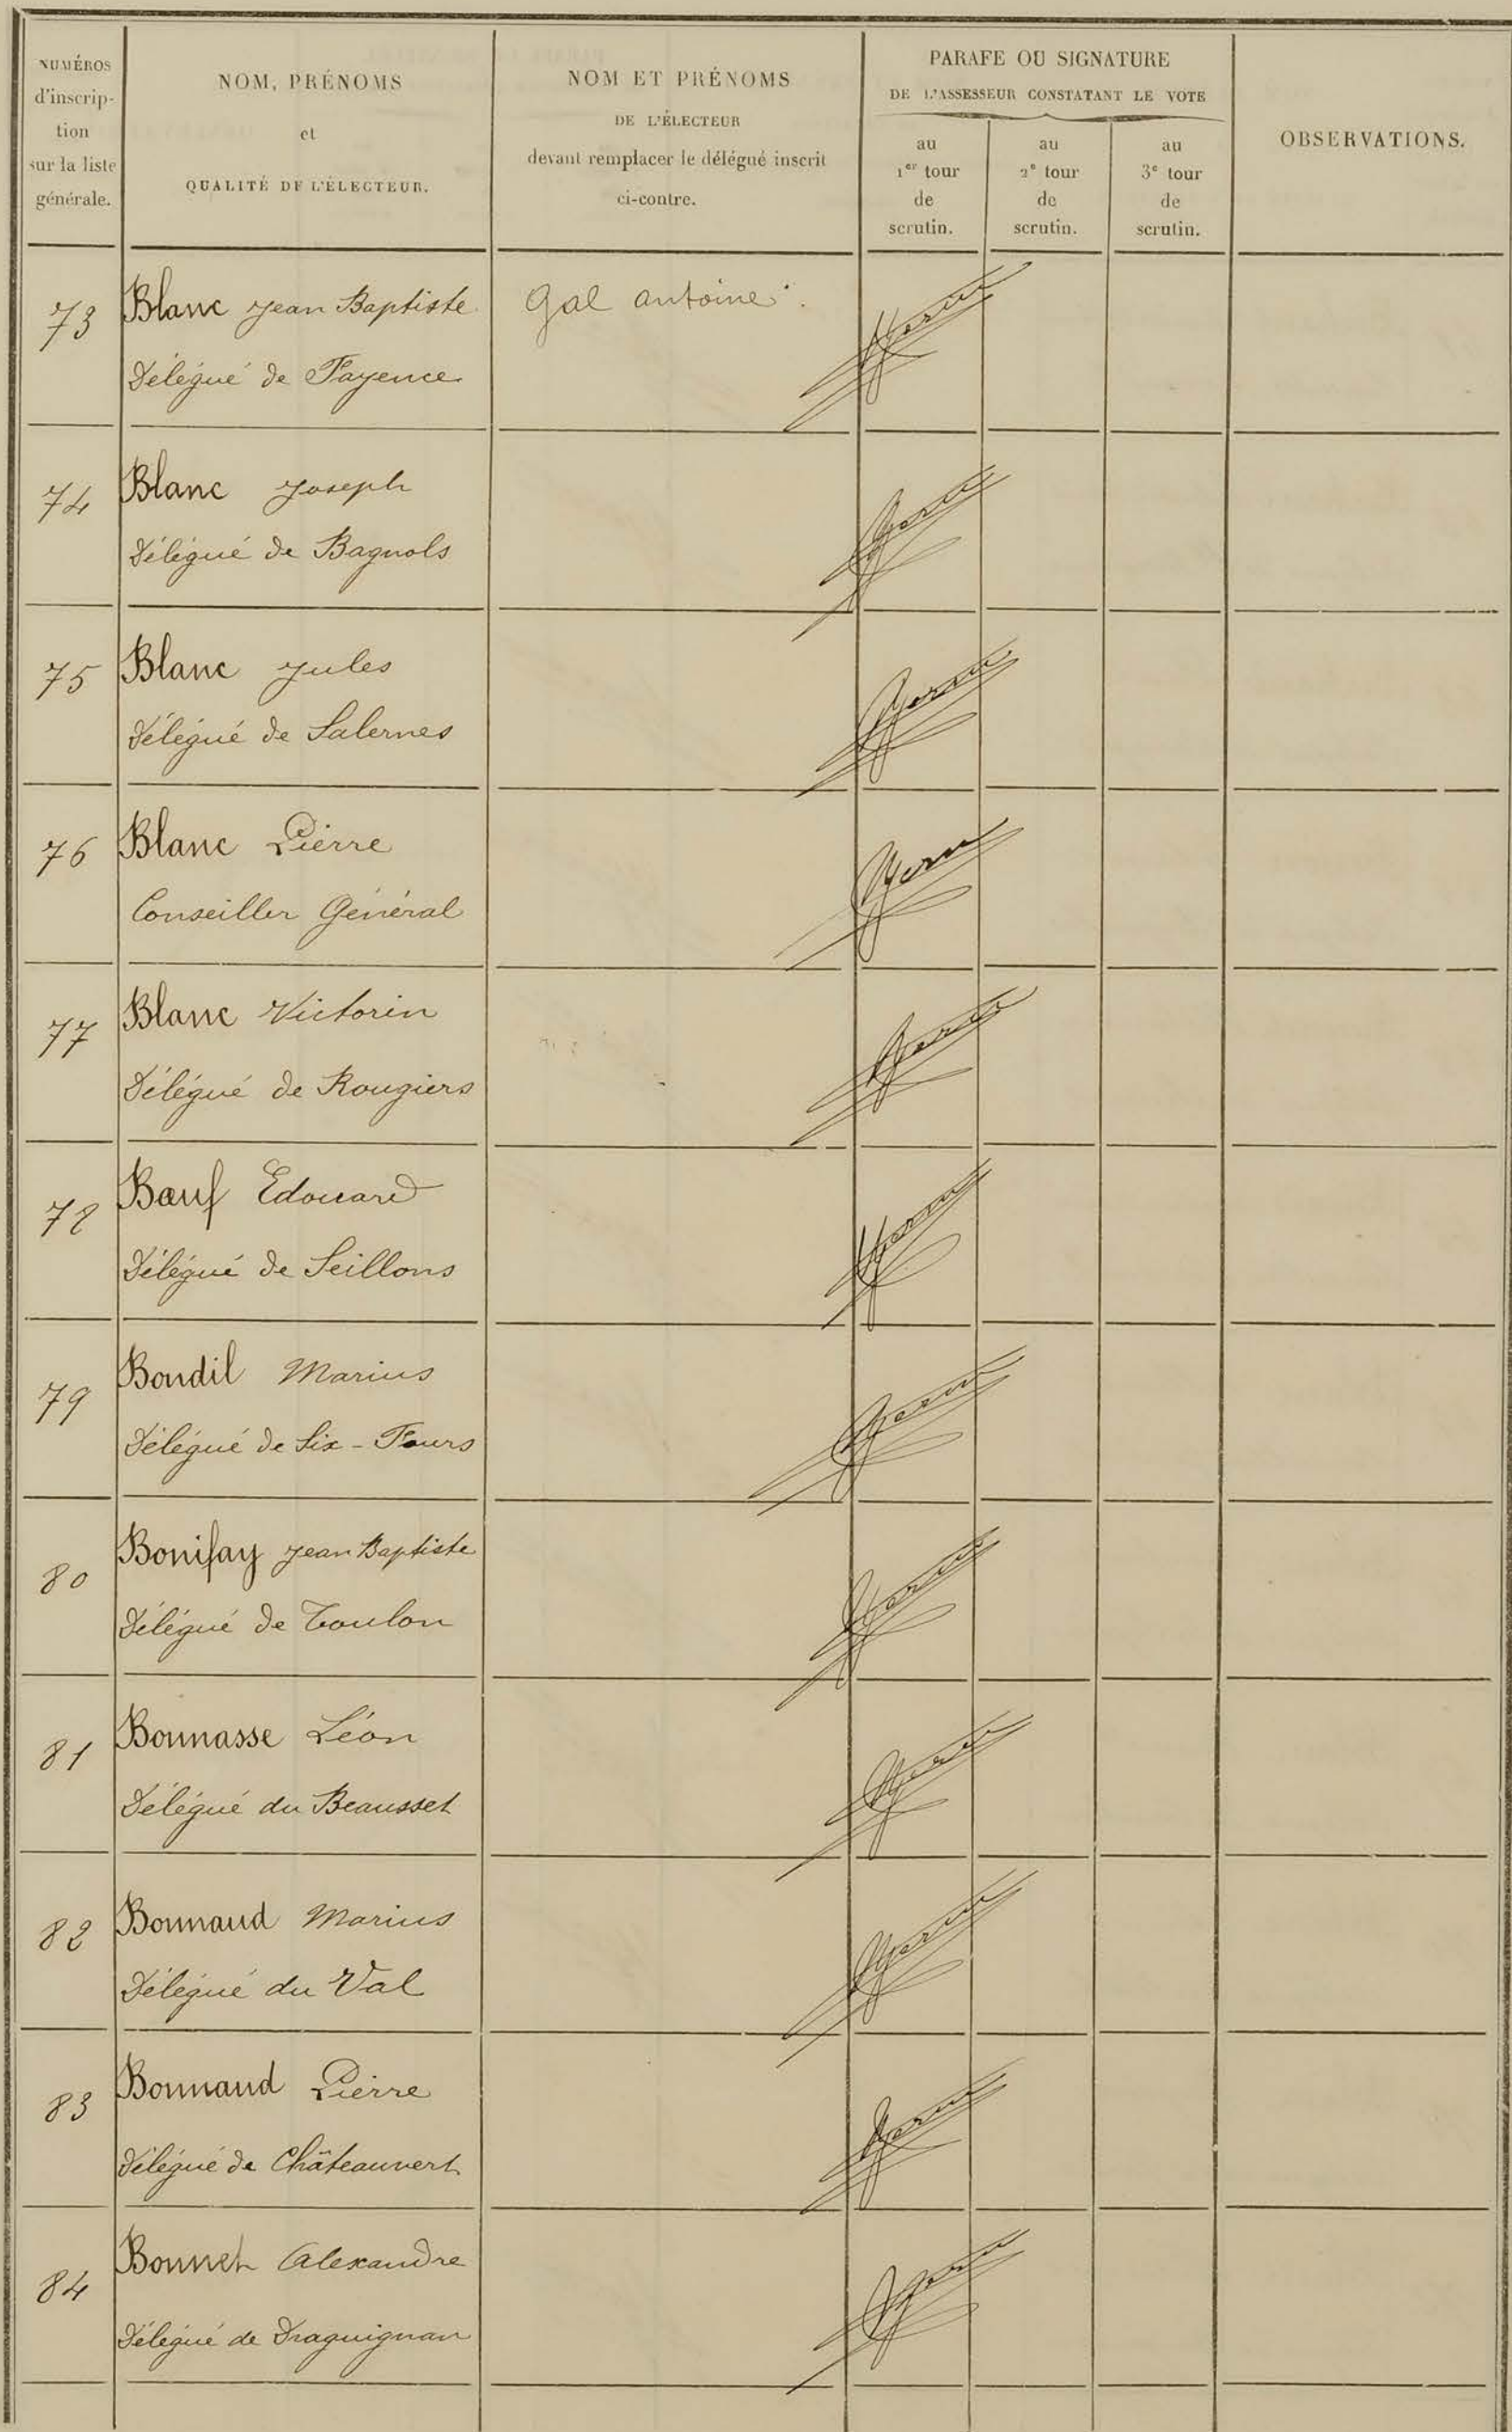 NUMÉROS
d'inscrip-
tion
sur la liste
générale.
NOM, PRÉNOMS
et
QUALITÉ DE L'ÉLECTEUR.
NOM ET PRÉNOMS
DE L'ÉLECTEUR
devant remplacer le délégué inscrit
ci-contre.
PARAFE OU SIGNATURE
DE L'ASSESSEUR CONSTATANT LE VOTE
au
1er tour
de
scrutin.
au
2e tour
de
scrutin.
au
3e tour
de
scrutin.
OBSERVATIONS.
73 Blanc Jean Baptiste Gal Antoine
Délégué de Fayence
74 Blanc Joseph
Délégué de Bagnols
75 Blanc Jules
Délégué de Salernes
76 Blanc Pierre
Conseiller Général
77 Blanc Victorin
Délégué de Rougiers
78 Bœuf Edouard
Délégué de Seillons
79 Bondil Marius
Délégué de Six-Fours
80 Bonifay Jean Baptiste
Délégué de Toulon
81 Bonnasse Léon
Délégué du Beausset
82 Bonnaud Marius
Délégué du Val
83 Bonnaud Pierre
Délégué de Châteauvert
84 Bonnet Alexandre
Délégué de Draguignan